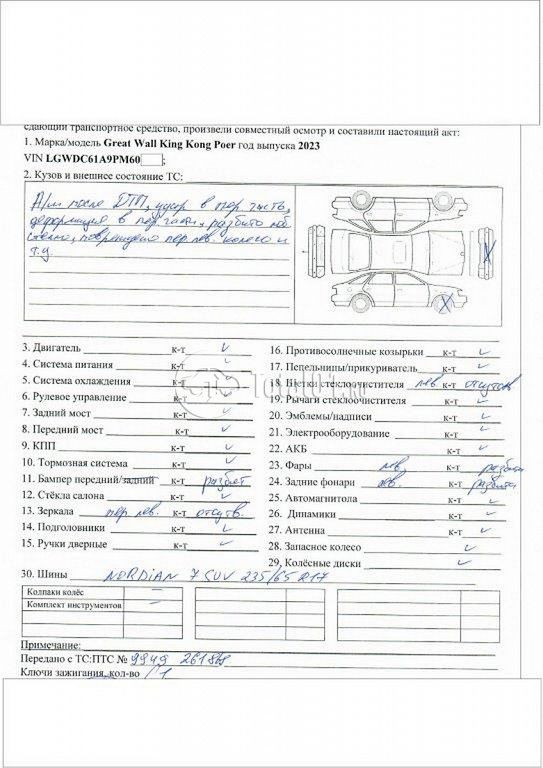 сдающий транспортное средство, произвели совместный осмотр и составили настоящий акт:
1. Марка/модель Great Wall King Kong Poer год выпуска 2023
VIN LGWDC61A9PM60 ;
2. Кузов и внешнее состояние ТС:
А/м после ДТП, удар в пер. часть,
деформация в пер. части, разбито
стекло, повреждено пер. лев. колесо и
т.д.
3. Двигатель к-т ✓
4. Система питания к-т ✓
5. Система охлаждения к-т ✓
6. Рулевое управление к-т ✓
7. Задний мост к-т ✓
8. Передний мост к-т ✓
9. КПП к-т ✓
10. Тормозная система к-т ✓
11. Бампер передний/задний к-т разбит
12. Стёкла салона к-т ✓
13. Зеркала пер. лев. к-т отсутв.
14. Подголовники к-т ✓
15. Ручки дверные к-т ✓
16. Противосолнечные козырьки к-т ✓
17. Пепельницы/прикуриватель к-т ✓
18. Щетки стеклоочистителя лев. к-т отсутств
19. Рычаги стеклоочистителя к-т ✓
20. Эмблемы/надписи к-т ✓
21. Электрооборудование к-т ✓
22. АКБ к-т ✓
23. Фары лев. к-т разбита
24. Задние фонари лев. к-т разбита
25. Автомагнитола к-т ✓
26. Динамики к-т ✓
27. Антенна к-т ✓
28. Запасное колесо ✓
29. Колёсные диски ✓
30. Шины NORDIAN 7 SUV 235/65 R17
Колпаки колёс –
Комплект инструментов –
Примечание:
Передано с ТС:ПТС № 9949
Ключи зажигания, кол-во 1